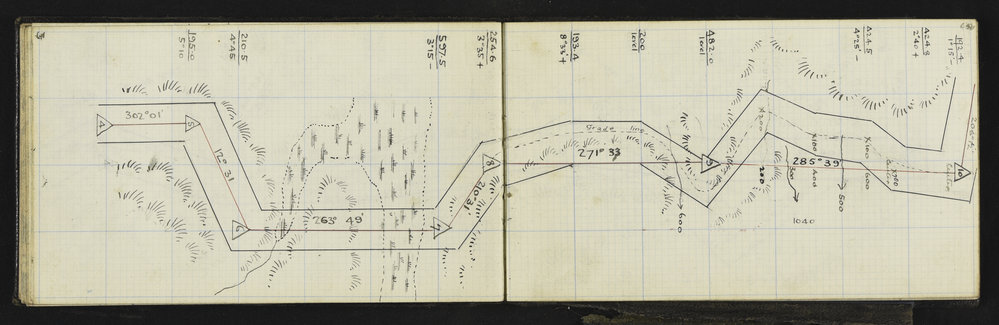 195.0
5°10
210.5
4°45
597.5
3°15-
254.6
3°35+
193.4
8°33'+
200
level
482.0
level
424.5
4°25'-
424.8
2°40+
192.4
1°15'-
4
302°01'
5
12° 31
6
263° 49'
7
210°31'
8
271° 33
grade line
9
600
X200
200
X400
285° 39'
300
400
500
X600
600
X700
10
1040